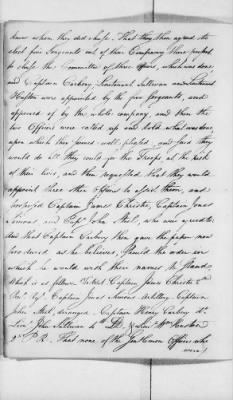 knew whom they did chuse. That they then agreed to
elect five Sergeants out of their Company there present
to chuse the Committee of three officers, which was done,
and Captain Carbery, Lieutenant Sullivan and Lieutenant
Huston were appointed by the five Sergeants, and
approved of by the whole company, and then the
two Officers were called up and told what was done,
upon which they seemed well pleased, and said they
would do all they could for the Troops at the risk
of their lives, and then requested that they would
appoint three other Officers to assist them, and
proposed Captain James Christie, Captain Jonas
Simonds and Capt. John Stil, who were
that Captain Carbery then gave the paper now
produced as he believes, the order in
which he would with these names
which is as follows Captain James Christie 2d
by Captain Jonas Simonds Artillery, Captain
John Stil, deranged, Captain Henry Carbery do.
Lieut. John Sullivan 4th L.D. & Lieut. Wm. Huston
2d P.R. That none of the Gentlemen Officers who
were